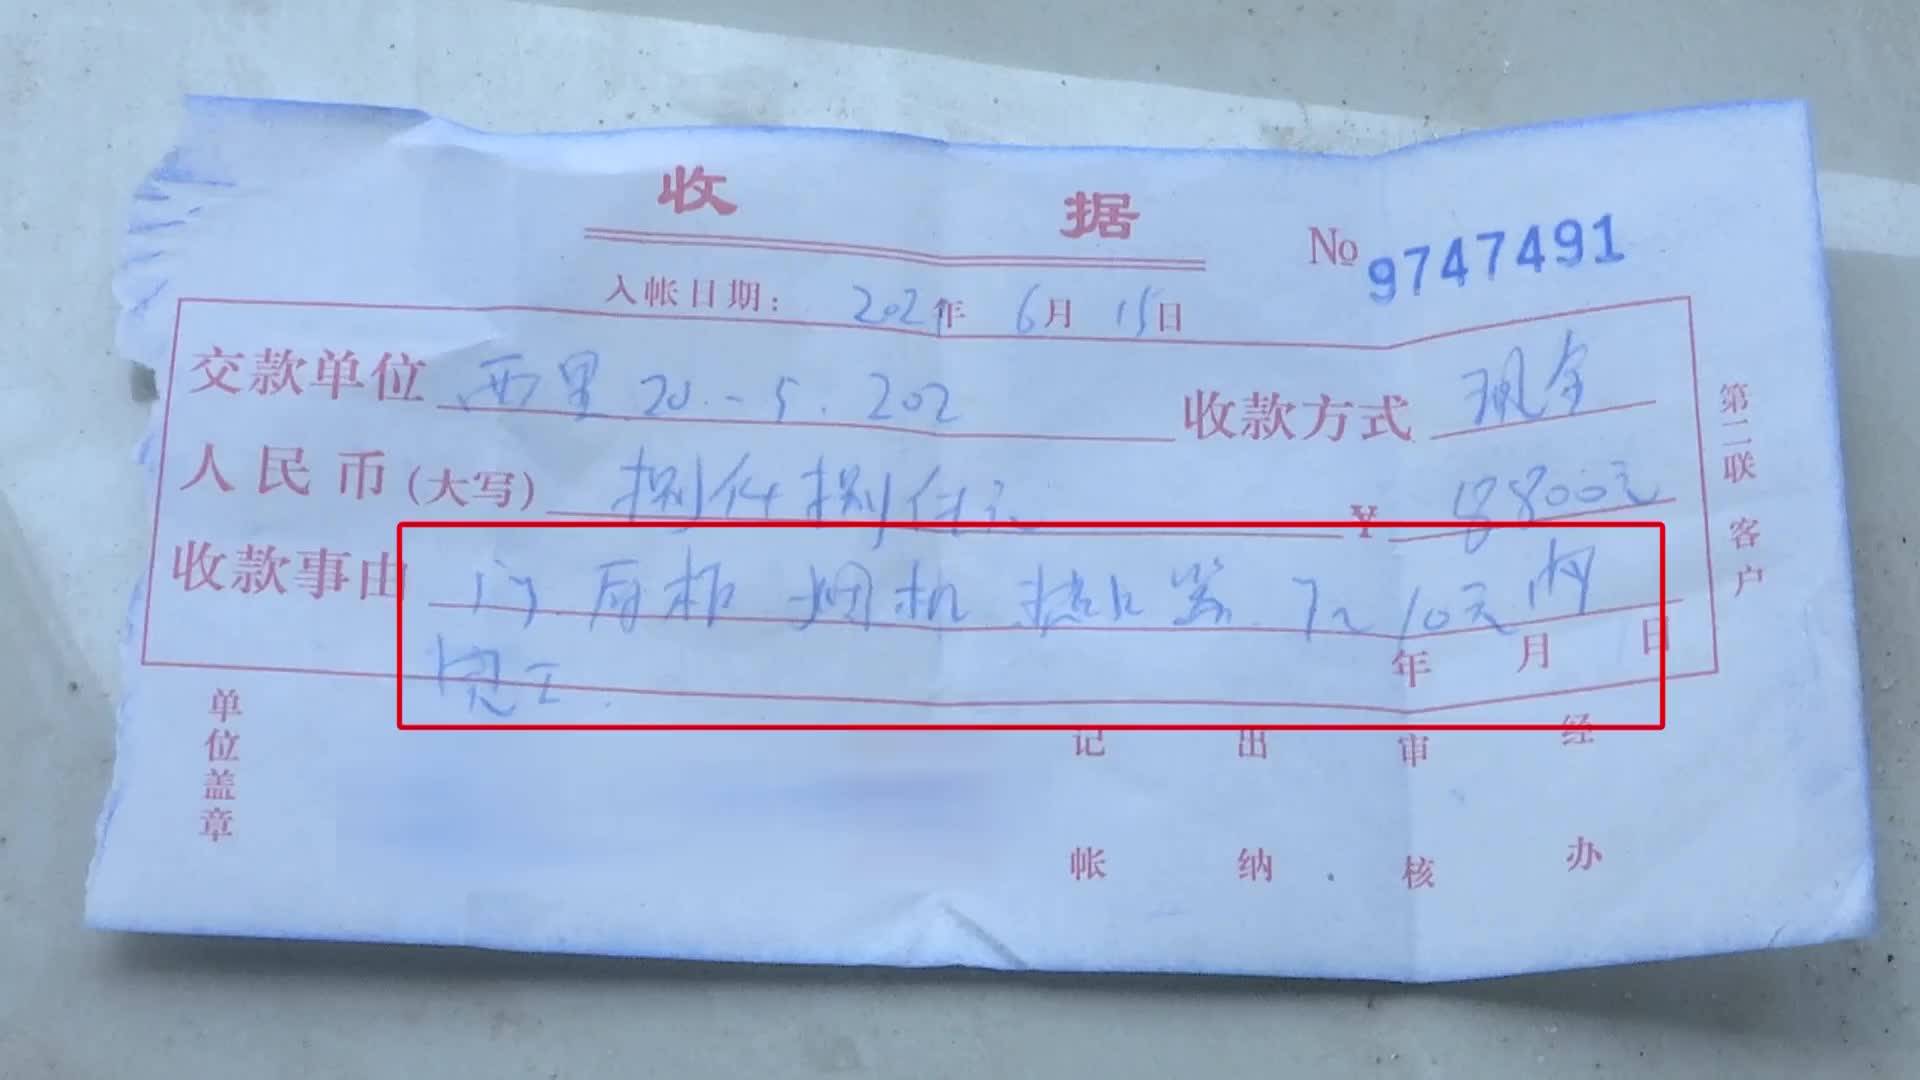 收 据
No 9747491
入帐日期： 202 年 6月 15日
交款单位 西里 20.-5.202 收款方式 现金
人民币(大写) 捌仟捌佰元 ¥ 8800元
收款事由 门 厨柜 烟机 热水器 7~10天内
完工.
年 月 日
单位盖章
记帐 出纳 审核 经办
第二联 客户